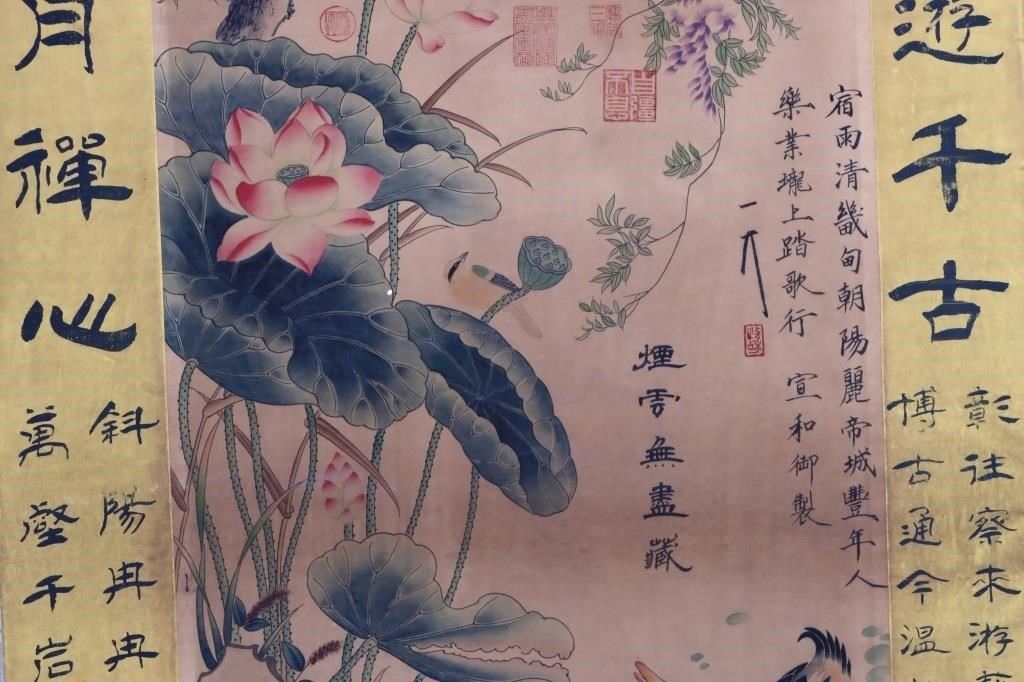 遊千古
彰往察来游
博古通今温
宿雨清畿甸朝陽麗帝城豐年人
樂業壠上踏歌行 宣和御製
煙雲無盡藏
月禪心
斜陽冉冉
萬壑千岩